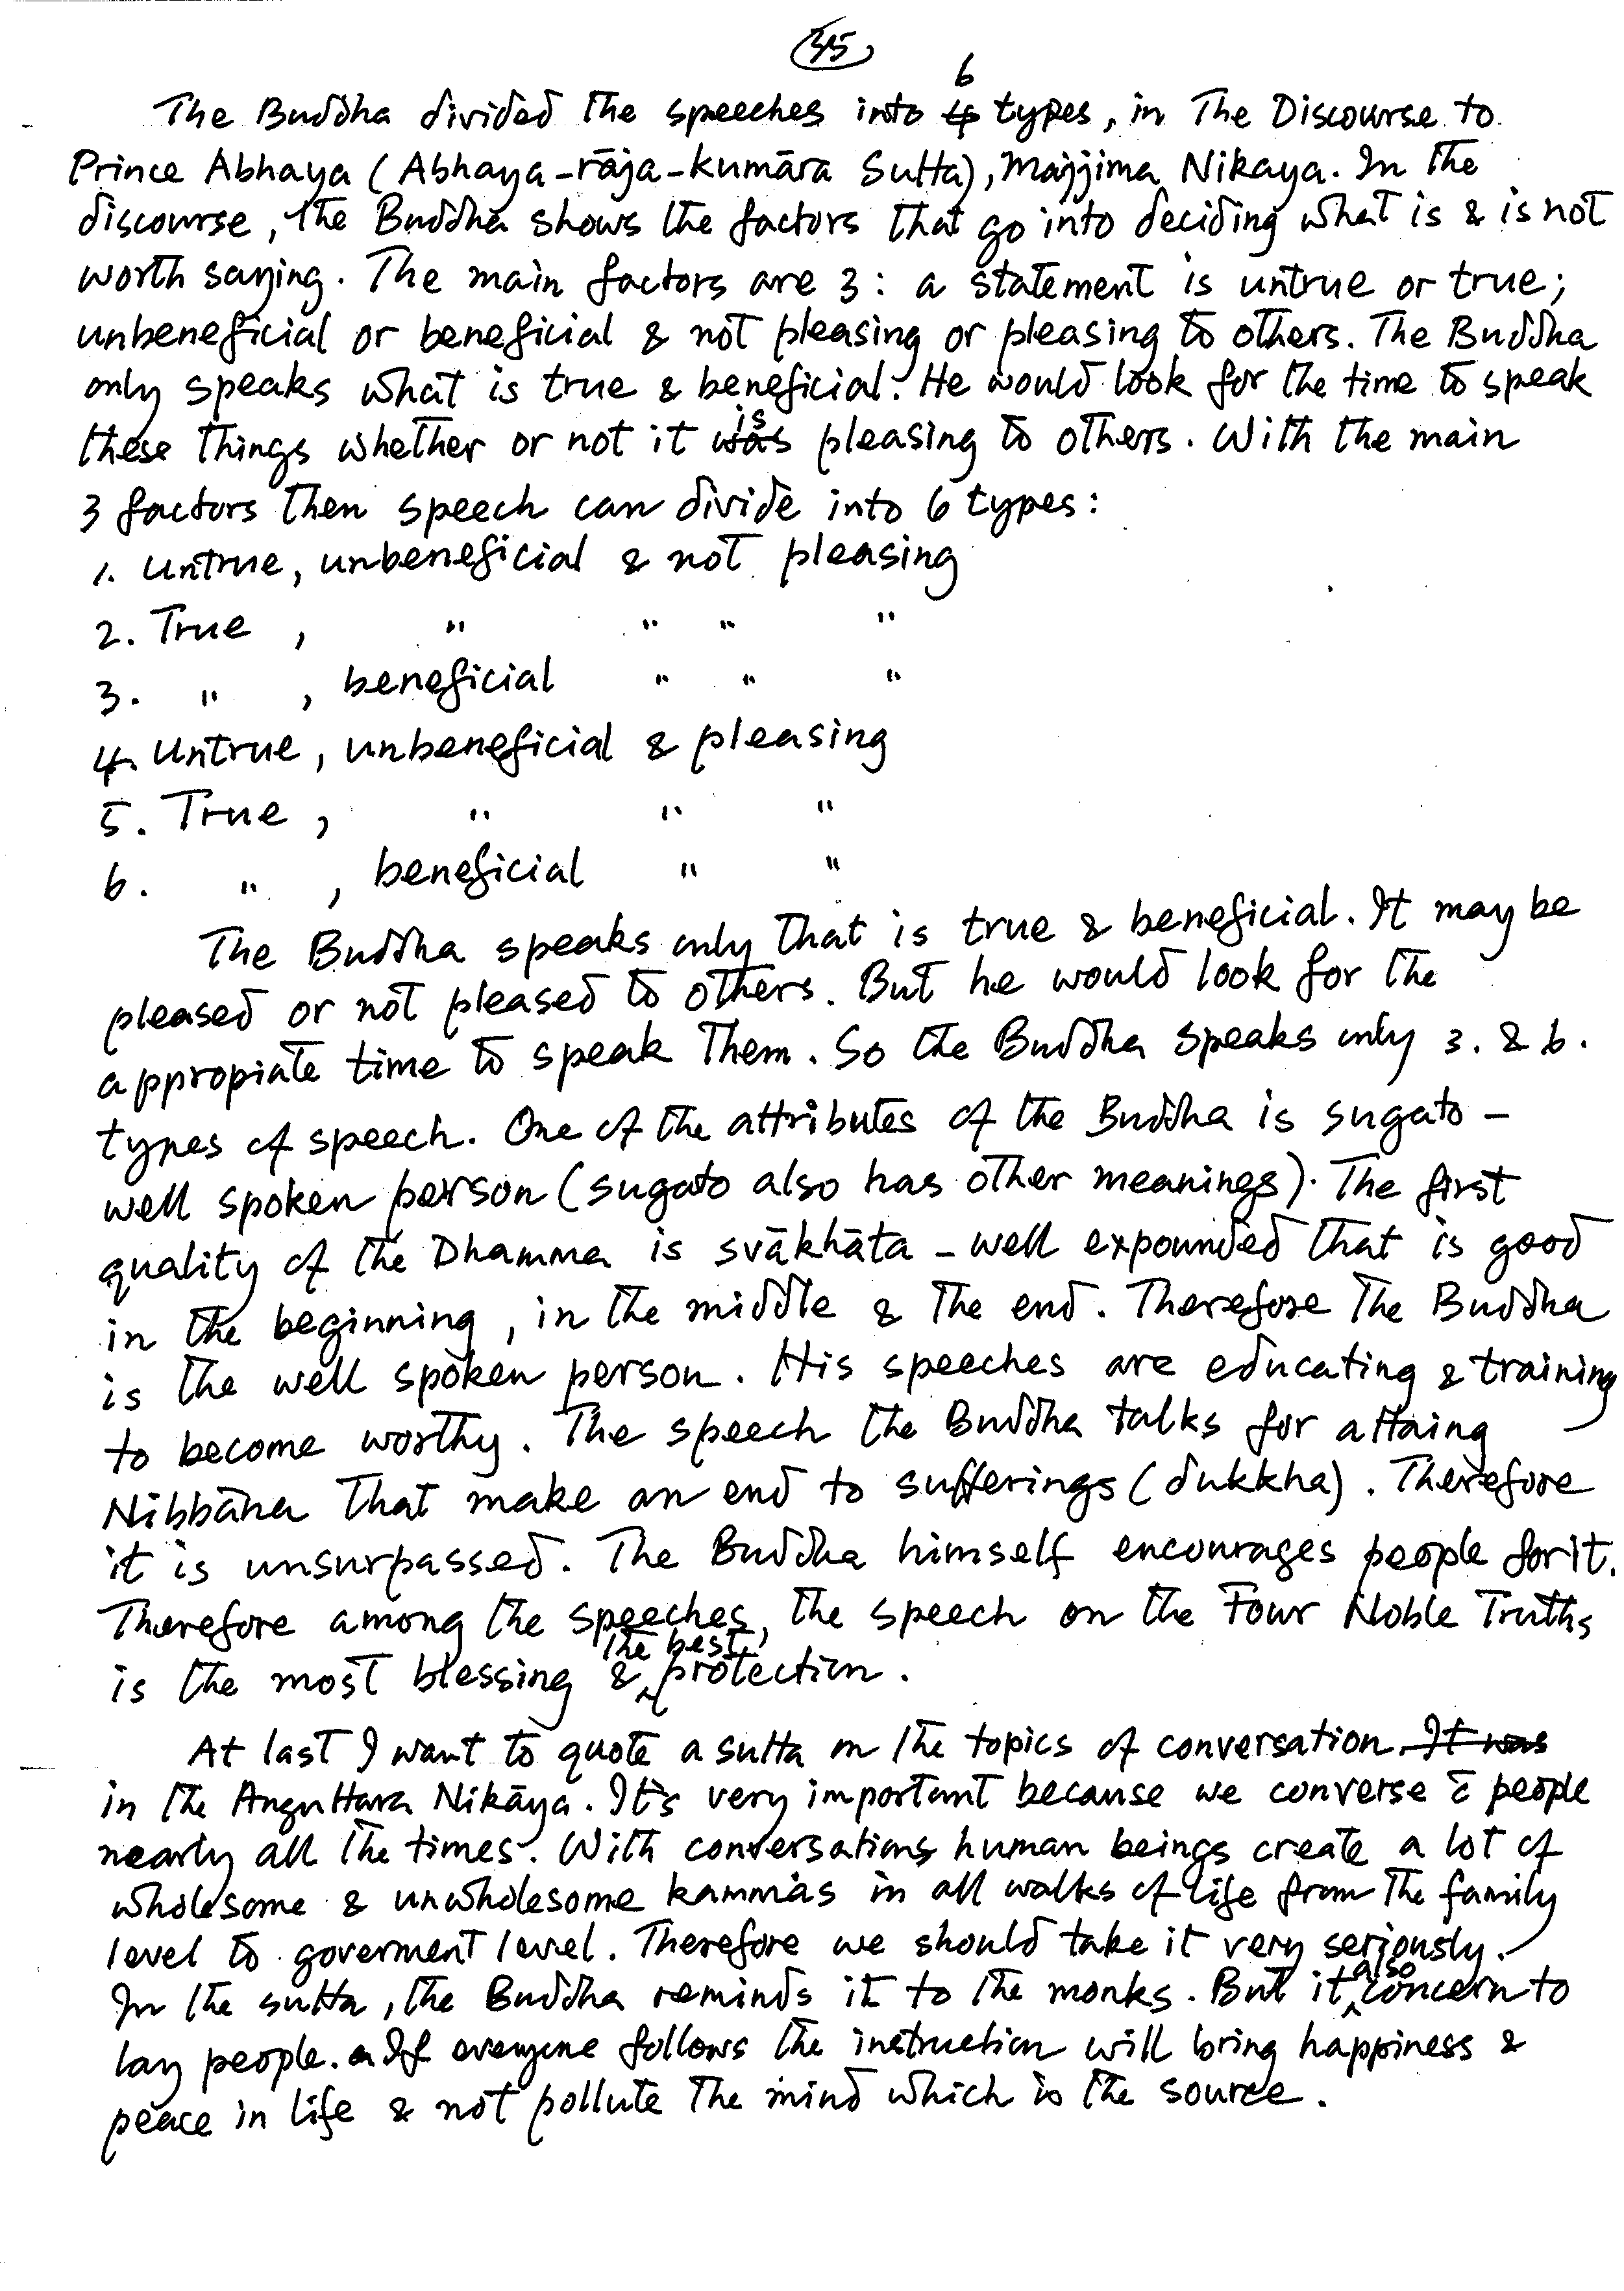 35
The Buddha divided the speeches into 6 types, in The Discourse to
Prince Abhaya (Abhaya-rāja-kumāra Sutta), Majjima Nikaya. In the
discourse, the Buddha shows the factors that go into deciding what is & is not
worth saying. The main factors are 3: a statement is untrue or true;
unbeneficial or beneficial & not pleasing or pleasing to others. The Buddha
only speaks what is true & beneficial. He would look for the time to speak
these things whether or not it is pleasing to others. With the main
3 factors then speech can divide into 6 types:
1. Untrue, unbeneficial & not pleasing
2. True , " " " "
3. " , beneficial " " "
4. Untrue, unbeneficial & pleasing
5. True , " " "
6. " , beneficial " "
The Buddha speaks only that is true & beneficial. It may be
pleased or not pleased to others. But he would look for the
appropiate time to speak them. So the Buddha speaks only 3. & 6.
types of speech. One of the attributes of the Buddha is sugato –
well spoken person (sugato also has other meanings). The first
quality of the Dhamma is svākhāta – well expounded that is good
in the beginning, in the middle & the end. Therefore the Buddha
is the well spoken person. His speeches are educating & training
to become worthy. The speech the Buddha talks for attaing
Nibbāna that make an end to sufferings (dukkha). Therefore
it is unsurpassed. The Buddha himself encourages people for it.
Therefore among the speeches, the speech on the Four Noble Truths
is the most blessing & the best protection.
At last I want to quote a sutta on the topics of conversation. It was
in the Anguttara Nikāya. It's very important because we converse c̄ people
nearly all the times. With conversations human beings create a lot of
wholesome & unwholesome kammas in all walks of life from the family
level to goverment level. Therefore we should take it very seriously.
In the sutta, the Buddha reminds it to the monks. But it also concern to
lay people. If everyone follows the instruction will bring happiness &
peace in life & not pollute the mind which is the source.